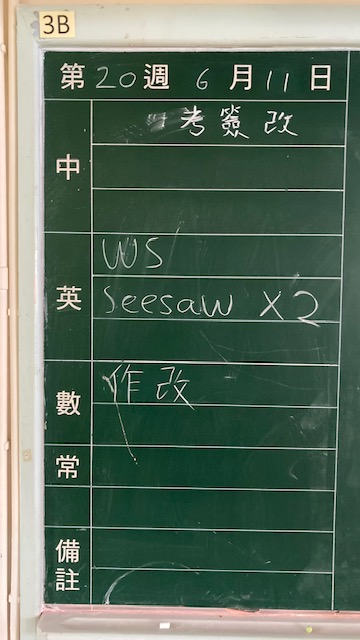 3B
第20週 6月11日
中
考簽改
英
WS
Seesaw X2
數
作改
常
備註